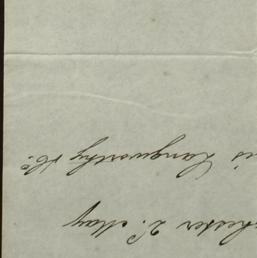 hester 2d May
is Langworthy & Co